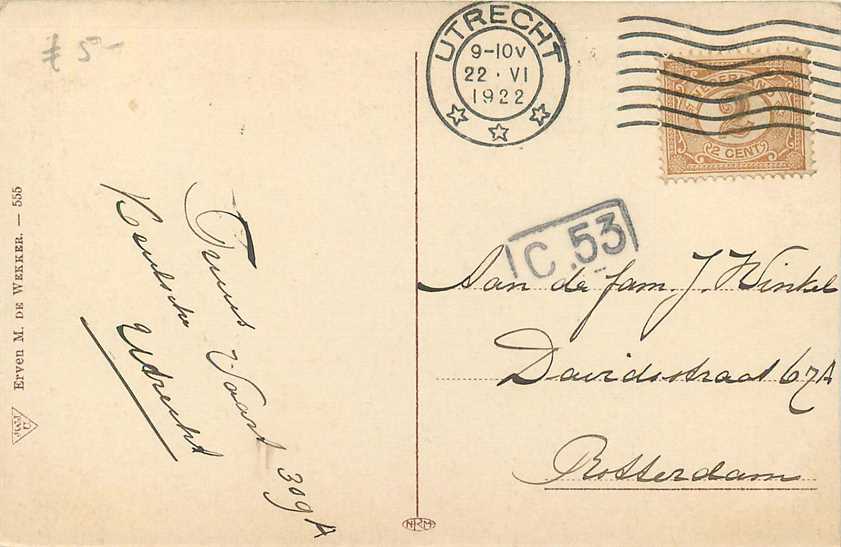 5-
UTRECHT
9-10V
22 · VI
1922
NEDERLAND
2
2 CENT
C.53
Aan de fam. J. Winkel
Davidsstraat 67A
Rotterdam
Truus Vaart 309A
Keulsche
Utrecht
Erven M. DE WEKKER. — 555
NRM